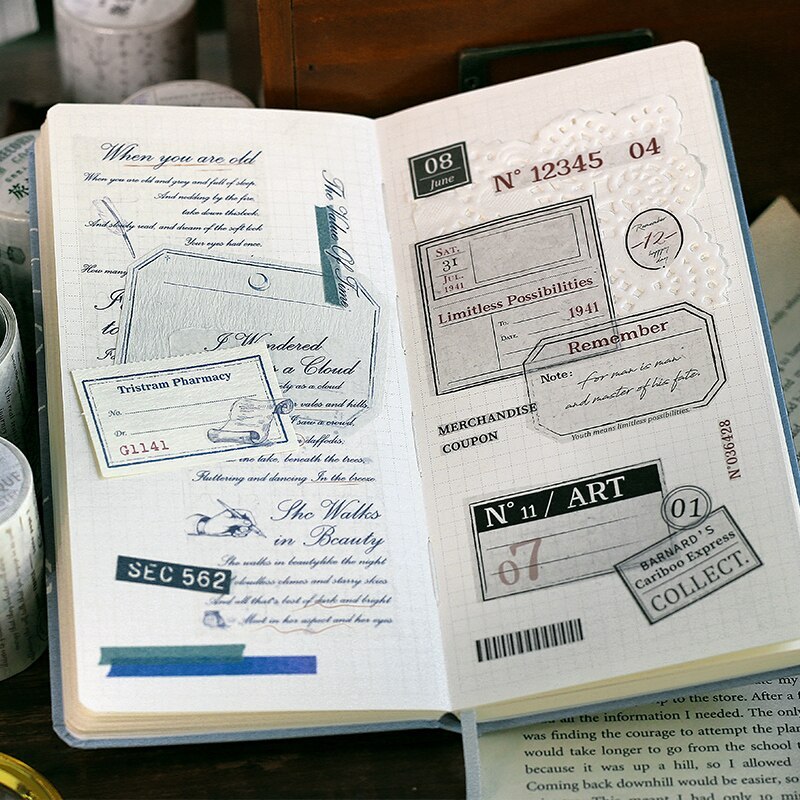 When you are old
When you are old and grey and full of sleep,
And nodding by the fire,
take down thisbook,
And slowly read, and dream of the soft look
Your eyes had once,
How many
The Value Of Time
I Wondered
as a Cloud
ly as a cloud
vales and hills,
I saw a crowd,
daffodils;
the lake, beneath the trees,
Fluttering and dancing In the breeze
Tristram Pharmacy
No.
Dr.
G1141
She Walks
in Beauty
She walks in beautylike the night
cloudless climes and starry skies
And all that's best of dark and bright
Meet in her aspect and her eyes
SEC 562
08
June
N° 12345 04
Remember
-12-
SAT.
31
JUL.
1941
Limitless Possibilities
To.
1941
DATE.
Remember
Note:
for man is man
and master of his fate.
Youth means limitless possibilities.
MERCHANDISE
COUPON
N°036428
N° 11 / ART
07
01
BARNARD'S
Cariboo Express
COLLECT.
to the store. After a
all the information I needed. The only
was finding the courage to attempt the
would take longer to go from the school
because it was up a hill, so I allowed
Coming back downhill would be easier, so
This meant I had only 10